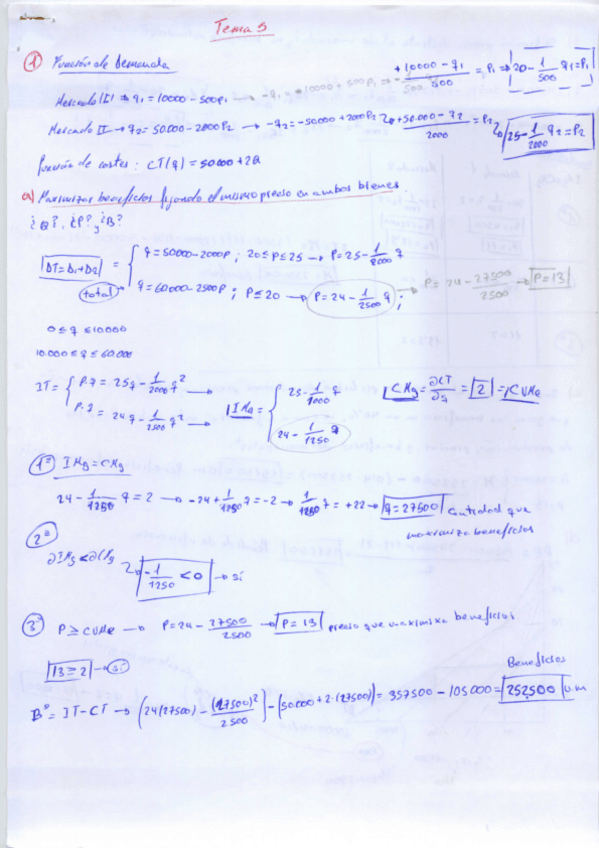 Tema 5
① Función de Demanda
Mercado I ⇒ q1 = 10000 - 500p1 → -q1 = -10000 + 500p1 → +10000 - q1 / 500 = P1 ⇒ 20 - 1/500 q1 = P1
Mercado II → q2 = 50.000 - 2000P2 → -q2 = -50000 + 2000P2 +50.000 - q2 / 2000 = P2 25 - 1/2000 q2 = P2
función de costes: CT(q) = 50000 + 2Q
a) Maximizar beneficios fijando el mismo precio en ambos bienes
¿Q?, ¿P? y ¿B?
DT = D1 + D2 = q = 50000 - 2000P; 20 ≤ p ≤ 25 → P = 25 - 1/2000 q
total q = 60000 - 2500P; P ≤ 20 → P = 24 - 1/2500 q; → P = 24 - 27500/2500 → P = 13
0 ≤ q ≤ 10.000
10.000 ≤ q ≤ 60.000
IT = P.q = 25q - 1/2000 q² → IMg = 25 - 1/1000 q CMg = ∂CT/∂q = 2 = CVMe
P.q = 24q - 1/2500 q² → 24 - 1/1250 q
1º IMg = CMg
24 - 1/1250 q = 2 → -24 + 1/1250 q = -2 → 1/1250 q = +22 → q = 27500 cantidad que
maximiza beneficios
2º
∂IMg < ∂CMg
-1/1250 < 0 → sí
3º P ≥ CVMe → P = 24 - 27500/2500 → P = 13 precio que maximiza beneficios
13 ≥ 2 → sí
Beneficios
Bº = IT - CT → (24(27500) - (27500)²/2500) - (50.000 + 2·(27500)) = 357500 - 105000 = 252.500 u.m